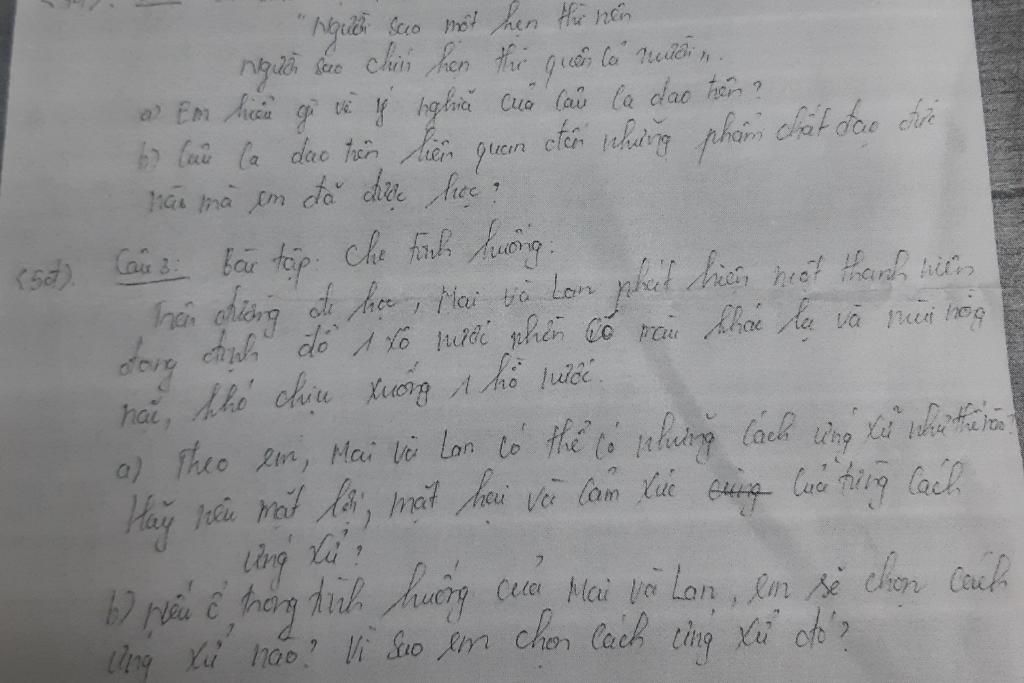 "Người sao một hẹn thì nên
Người sao chín hẹn thì quên cả mười".
a) Em hiểu gì về ý nghĩa của câu ca dao trên?
b) Câu ca dao trên liên quan đến những phẩm chất đạo đức
nào mà em đã được học?
(5đ). Câu 3: Bài tập: Cho tình huống:
Trên đường đi học, Mai và Lan phát hiện một thanh niên
đang định đổ 1 xô nước phèn có màu khác lạ và mùi nồng
nặc, khó chịu xuống 1 hồ nước.
a) Theo em, Mai và Lan có thể có những cách ứng xử như thế nào?
Hãy nêu mặt lợi, mặt hại và cảm xúc của từng cách
ứng xử?
b) Nếu ở trong tình huống của Mai và Lan, em sẽ chọn cách
ứng xử nào? Vì sao em chọn cách ứng xử đó?